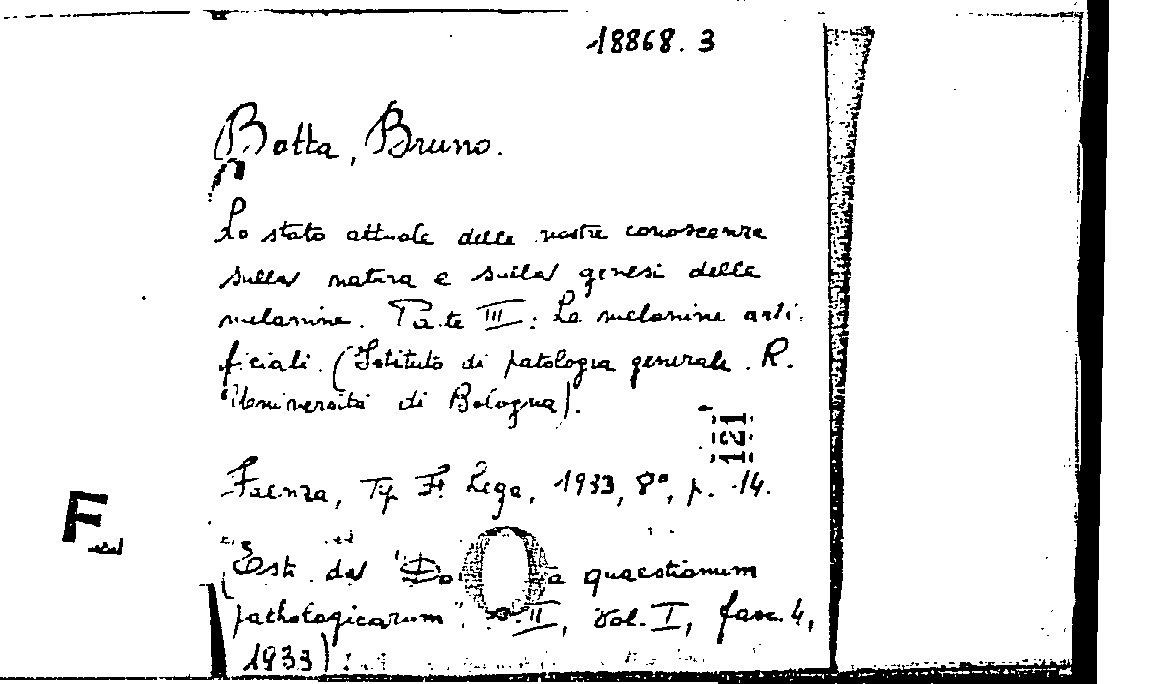 18868.3
Botta, Bruno.
Lo stato attuale delle nostre conoscenze
sulla natura e sulla genesi delle
melanine. Parte III: Le melanine arti-
ficiali. (Istituto di patologia generale. R.
Università di Bologna).
121
Faenza, Tip. F. Lega, 1933, 8°, p. 14.
F
(Estr. da "
quaestionum
pathologicarum". II, Vol. I, fasc. 4,
1933)